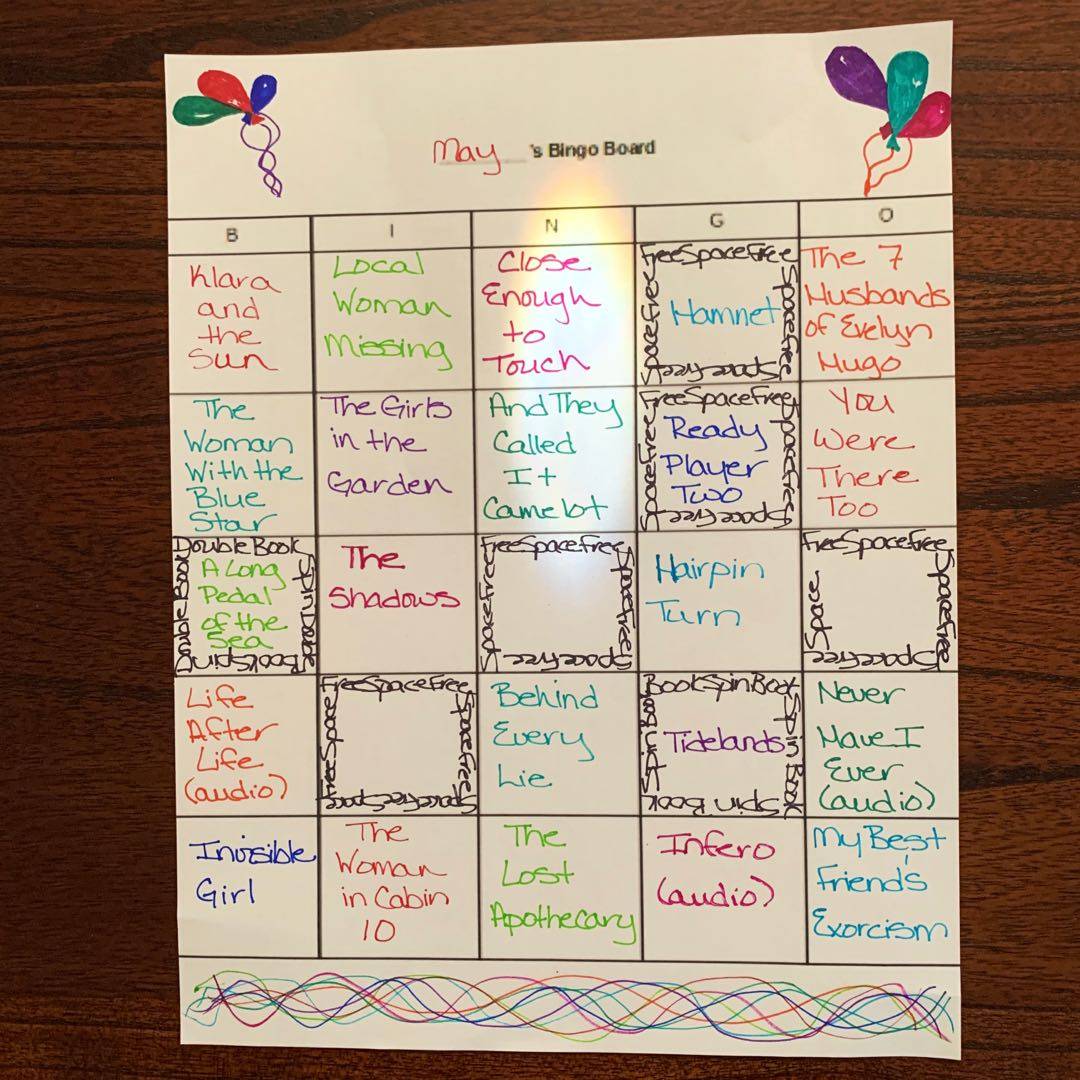 May 's Bingo Board
B I N G O
Klara
and
the
Sun
Local
Woman
Missing
Close
Enough
to
Touch
FreeSpaceFree
SpaceFree
Hamnet
SpaceFree
SpaceFree
The 7
Husbands
of Evelyn
Hugo
The
Woman
With the
Blue
Star
The Girls
in the
Garden
And They
Called
It
Camelot
FreeSpaceFree
SpaceFree
Ready
Player
Two
SpaceFree
SpaceFree
You
Were
There
Too
Double Book
Double Book
A Long
Pedal
of the
Sea
Spin Double
Book Spin
The
Shadows
FreeSpaceFree
SpaceFree
SpaceFree
SpaceFree
Hairpin
Turn
FreeSpaceFree
Space
SpaceFree
SpaceFree
Life
After
Life
(audio)
FreeSpaceFree
FreeSpace
SpaceFree
SpaceFreeSpace
Behind
Every
Lie
BookSpinBook
Spin Book
Tidelands
Spin Book
Spin Book
Never
Have I
Ever
(audio)
Invisible
Girl
The
Woman
in Cabin
10
The
Lost
Apothecary
Infero
(audio)
My Best
Friend's
Exorcism